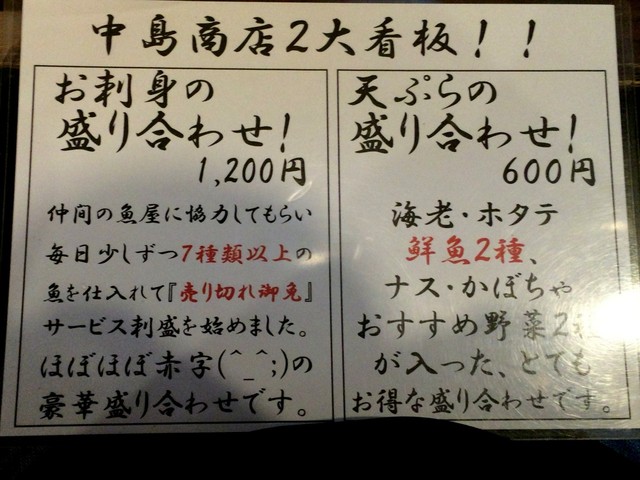 中島商店2大看板！！
お刺身の
盛り合わせ！
1,200円
仲間の魚屋に協力してもらい
毎日少しずつ7種類以上の
魚を仕入れて『売り切れ御免』
サービス刺盛を始めました。
ほぼほぼ赤字(^_^;)の
豪華盛り合わせです。
天ぷらの
盛り合わせ！
600円
海老・ホタテ
鮮魚2種、
ナス・かぼちゃ
おすすめ野菜2種
が入った、とても
お得な盛り合わせです。